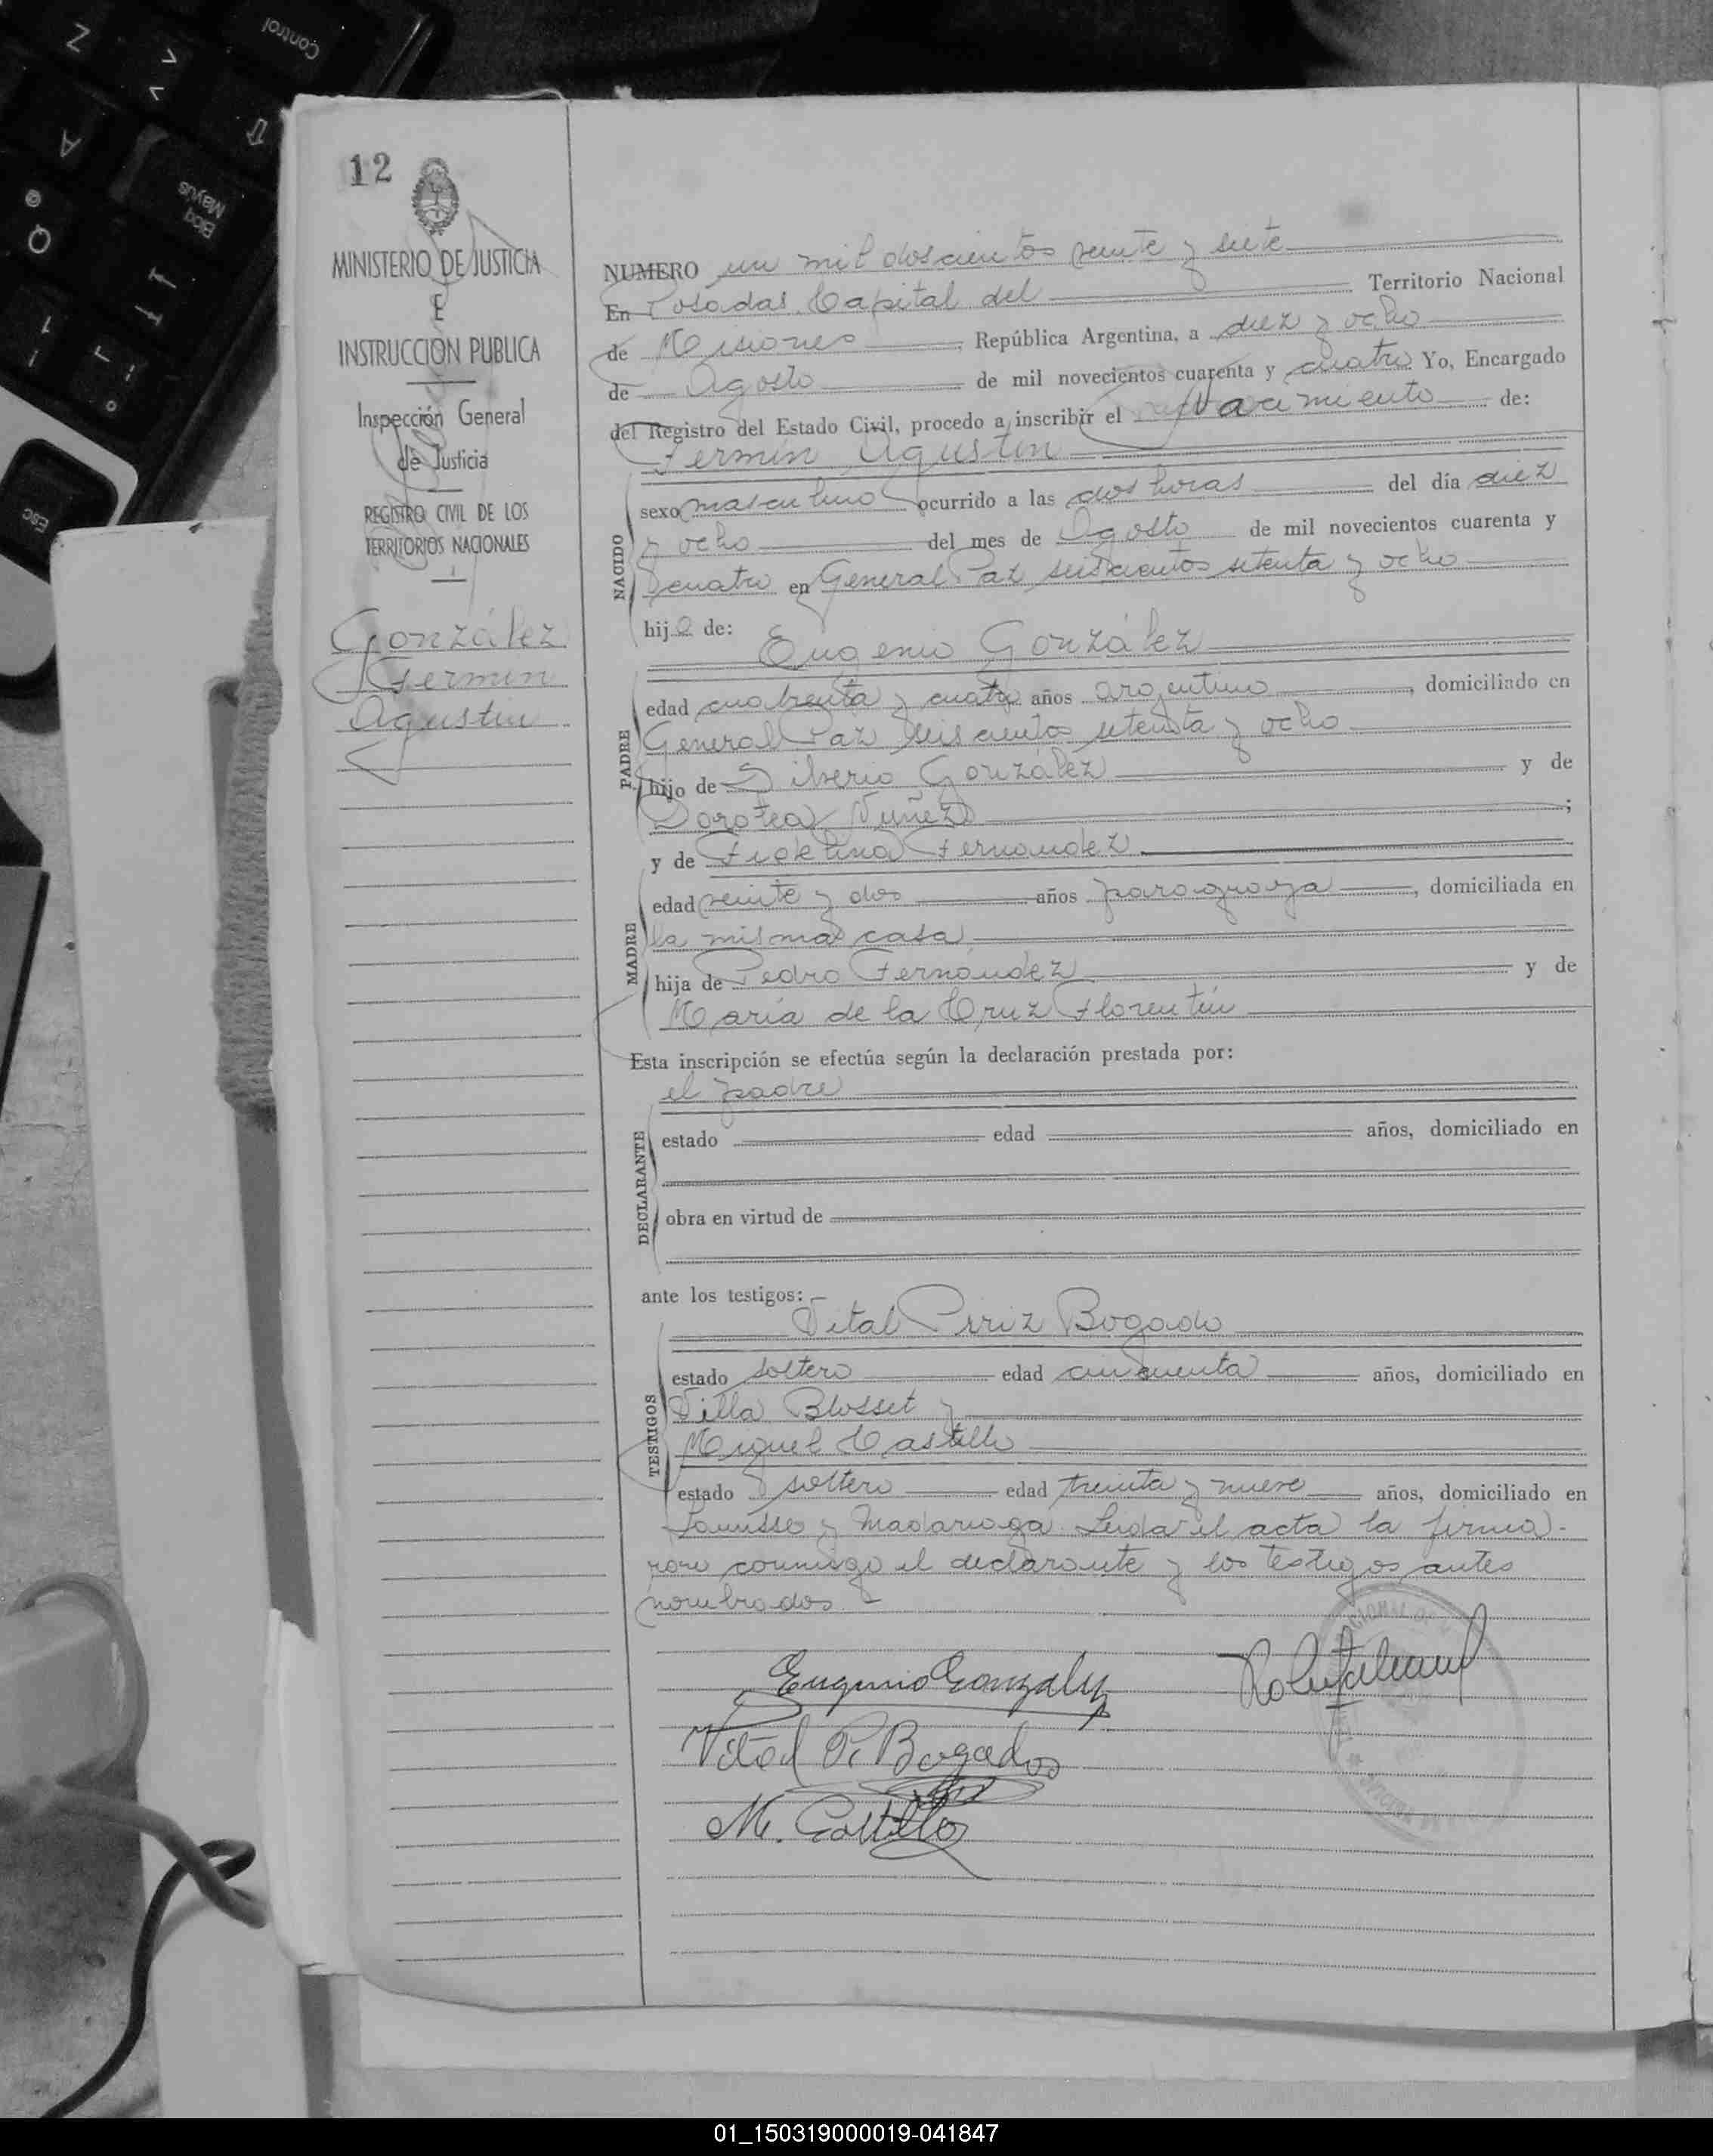 12
MINISTERIO DE JUSTICIA
E
INSTRUCCION PUBLICA
Inspección General
de Justicia
REGISTRO CIVIL DE LOS
TERRITORIOS NACIONALES
González
Fermin
Agustin
NUMERO un mil doscientos veinte y siete
En Posadas, Capital del Territorio Nacional
de Misiones, República Argentina, a diez y ocho
de Agosto de mil novecientos cuarenta y cuatro Yo, Encargado
del Registro del Estado Civil, procedo a inscribir el nacimiento de:
Fermín Agustín
NACIDO
sexo masculino ocurrido a las dos horas del día diez
y ocho del mes de Agosto de mil novecientos cuarenta y
cuatro en General Paz seiscientos setenta y ocho
hijo de:
Eugenio González
PADRE
edad cuarenta y cuatro años argentino, domiciliado en
General Paz seiscientos setenta y ocho
hijo de Silverio González y de
Dorotea Nuñez;
y de Fidelina Fernandez
MADRE
edad veinte y dos años paraguaya, domiciliada en
la misma casa
hija de Pedro Fernández y de
María de la Cruz Florentín
Esta inscripción se efectúa según la declaración prestada por:
el padre
DECLARANTE
estado edad años, domiciliado en
obra en virtud de
ante los testigos:
Vital Piriz Bogado
TESTIGOS
estado soltero edad cincuenta años, domiciliado en
Villa Blosset y
Miguel Castillo
estado soltero edad treinta y nueve años, domiciliado en
y Madariaga. Leida el acta la firma-
ron conmigo el declarante y los testigos antes
nombrados.
Eugenio Gonzalez
Vital P. Bogado
M. Castillo
01_150319000019-041847